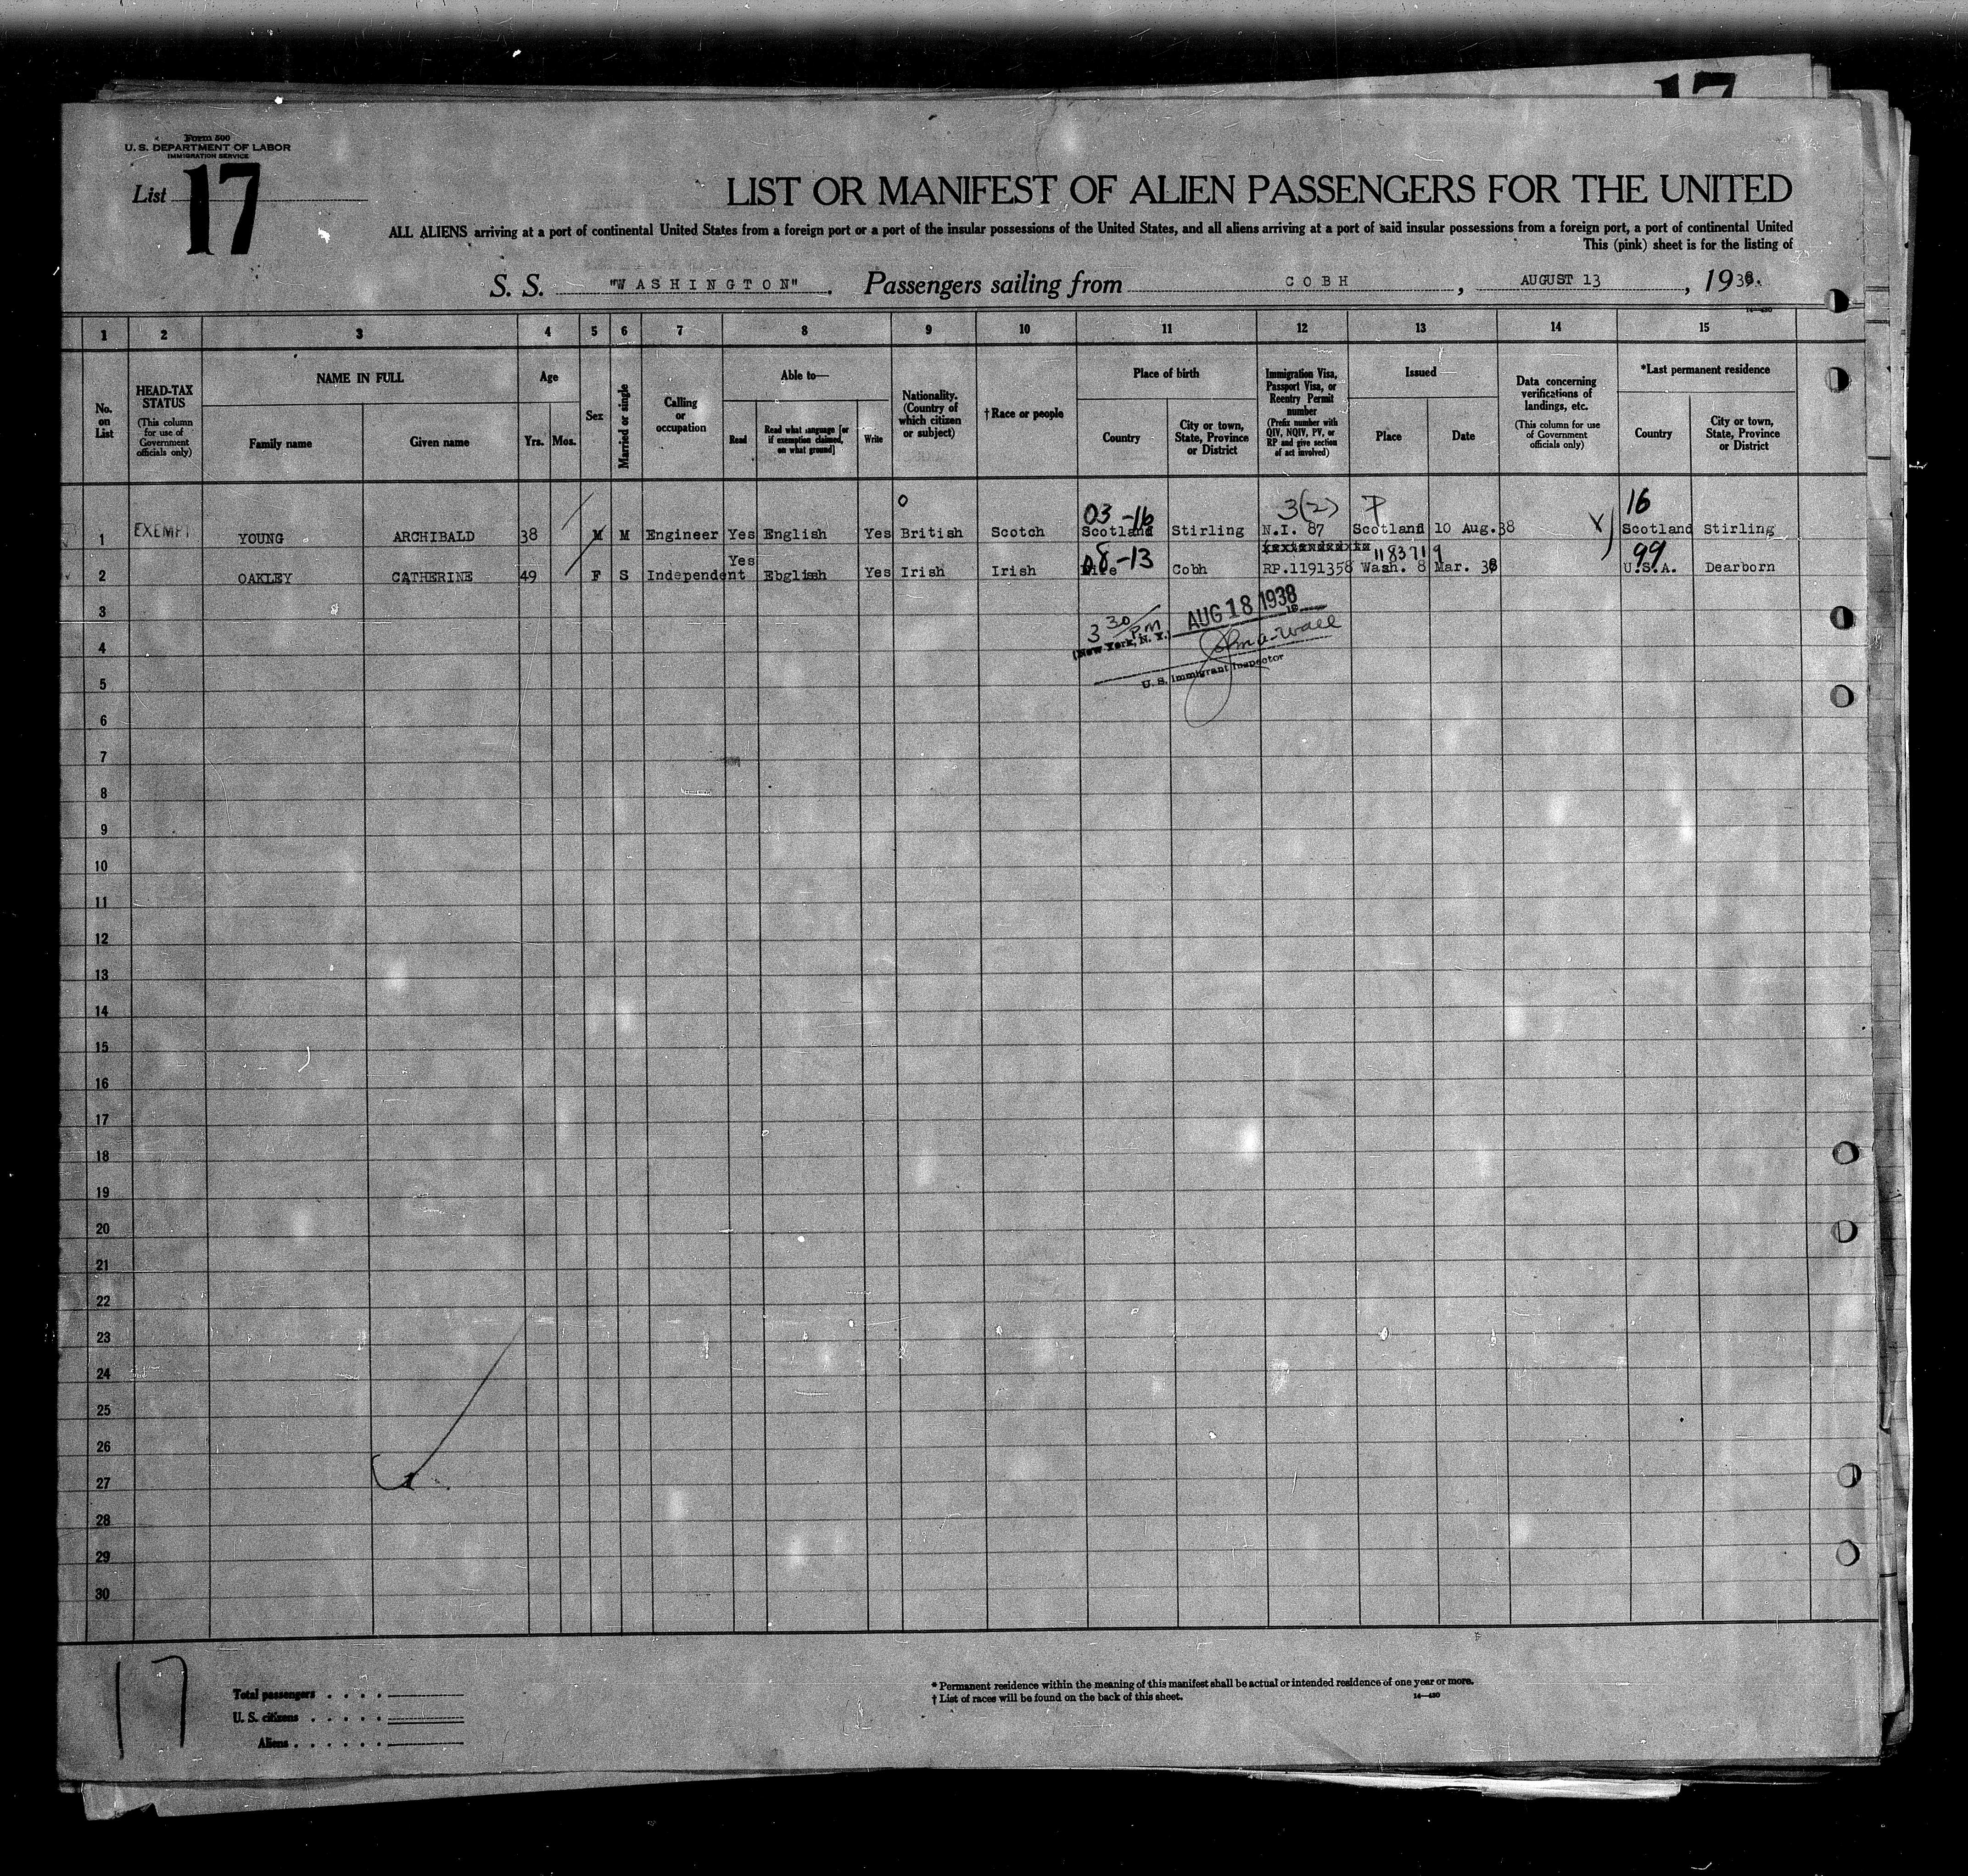 17
Form 500
U. S. DEPARTMENT OF LABOR
IMMIGRATION SERVICE
List 17
LIST OR MANIFEST OF ALIEN PASSENGERS FOR THE UNITED
ALL ALIENS arriving at a port of continental United States from a foreign port or a port of the insular possessions of the United States, and all aliens arriving at a port of said insular possessions from a foreign port, a port of continental United
This (pink) sheet is for the listing of
S. S. "WASHINGTON". Passengers sailing from COBH, AUGUST 13, 1938.
14-430
1 2 3 4 5 6 7 8 9 10 11 12 13 14 15
No. on List
HEAD-TAX STATUS (This column for use of Government officials only)
NAME IN FULL
Family name Given name
Age
Yrs. Mos.
Sex
Married or single
Calling or occupation
Able to—
Read
Read what language [or if exemption claimed, on what ground]
Write
Nationality. (Country of which citizen or subject)
†Race or people
Place of birth
Country
City or town, State, Province or District
Immigration Visa, Passport Visa, or Reentry Permit number (Prefix number with QIV, NQIV, PV, or RP and give section of act involved)
Issued—
Place Date
Data concerning verifications of landings, etc. (This column for use of Government officials only)
*Last permanent residence
Country
City or town, State, Province or District
0 03-16 3(2) P 16
1 EXEMPT YOUNG ARCHIBALD 38 M M Engineer Yes English Yes British Scotch Scotland Stirling N.I. 87 Scotland 10 Aug.38 Scotland Stirling
Yes 08-13 1183719 99
2 OAKLEY CATHERINE 49 F S Independent Ebglish Yes Irish Irish Cobh RP.1191358 Wash. 8 Mar. 38 U.S.A. Dearborn
3 30 PM AUG 18 1938
(New York, N. Y.) 19
John A. Wall
U. S. Immigrant Inspector
3
4
5
6
7
8
9
10
11
12
13
14
15
16
17
18
19
20
21
22
23
24
25
26
27
28
29
30
17
Total passengers . . . .
U. S. citizens . . . . .
Aliens . . . . . .
* Permanent residence within the meaning of this manifest shall be actual or intended residence of one year or more.
† List of races will be found on the back of this sheet.
14—430